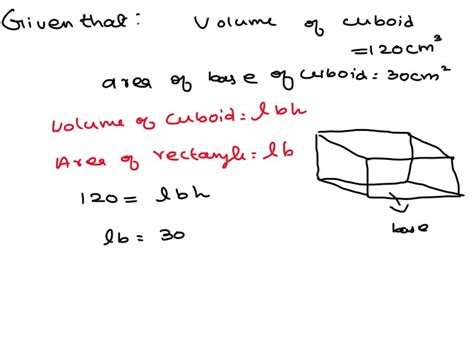 Given that: Volume of cuboid
=120cm³
area of base of cuboid=30cm²
Volume of cuboid=lbh
Area of rectangle=lb
120= lbh
lb= 30
base